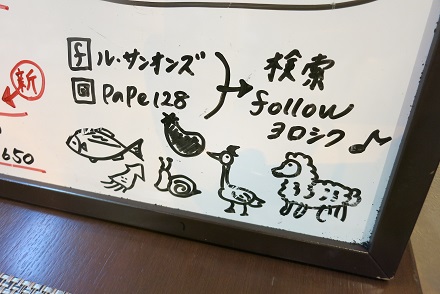 新
f ル・サンオンズ
PaPe128
検索
follow
ヨロシク♪
650